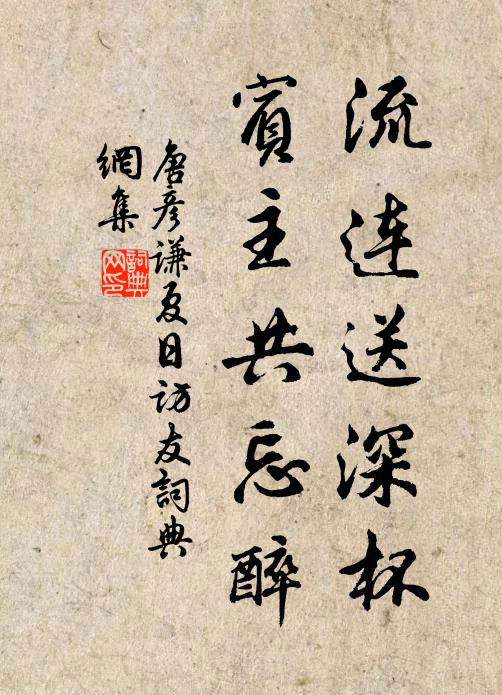 流连送深杯
賓主共忘醉
唐彦謙夏日访友詞典
網集
詞典
网印